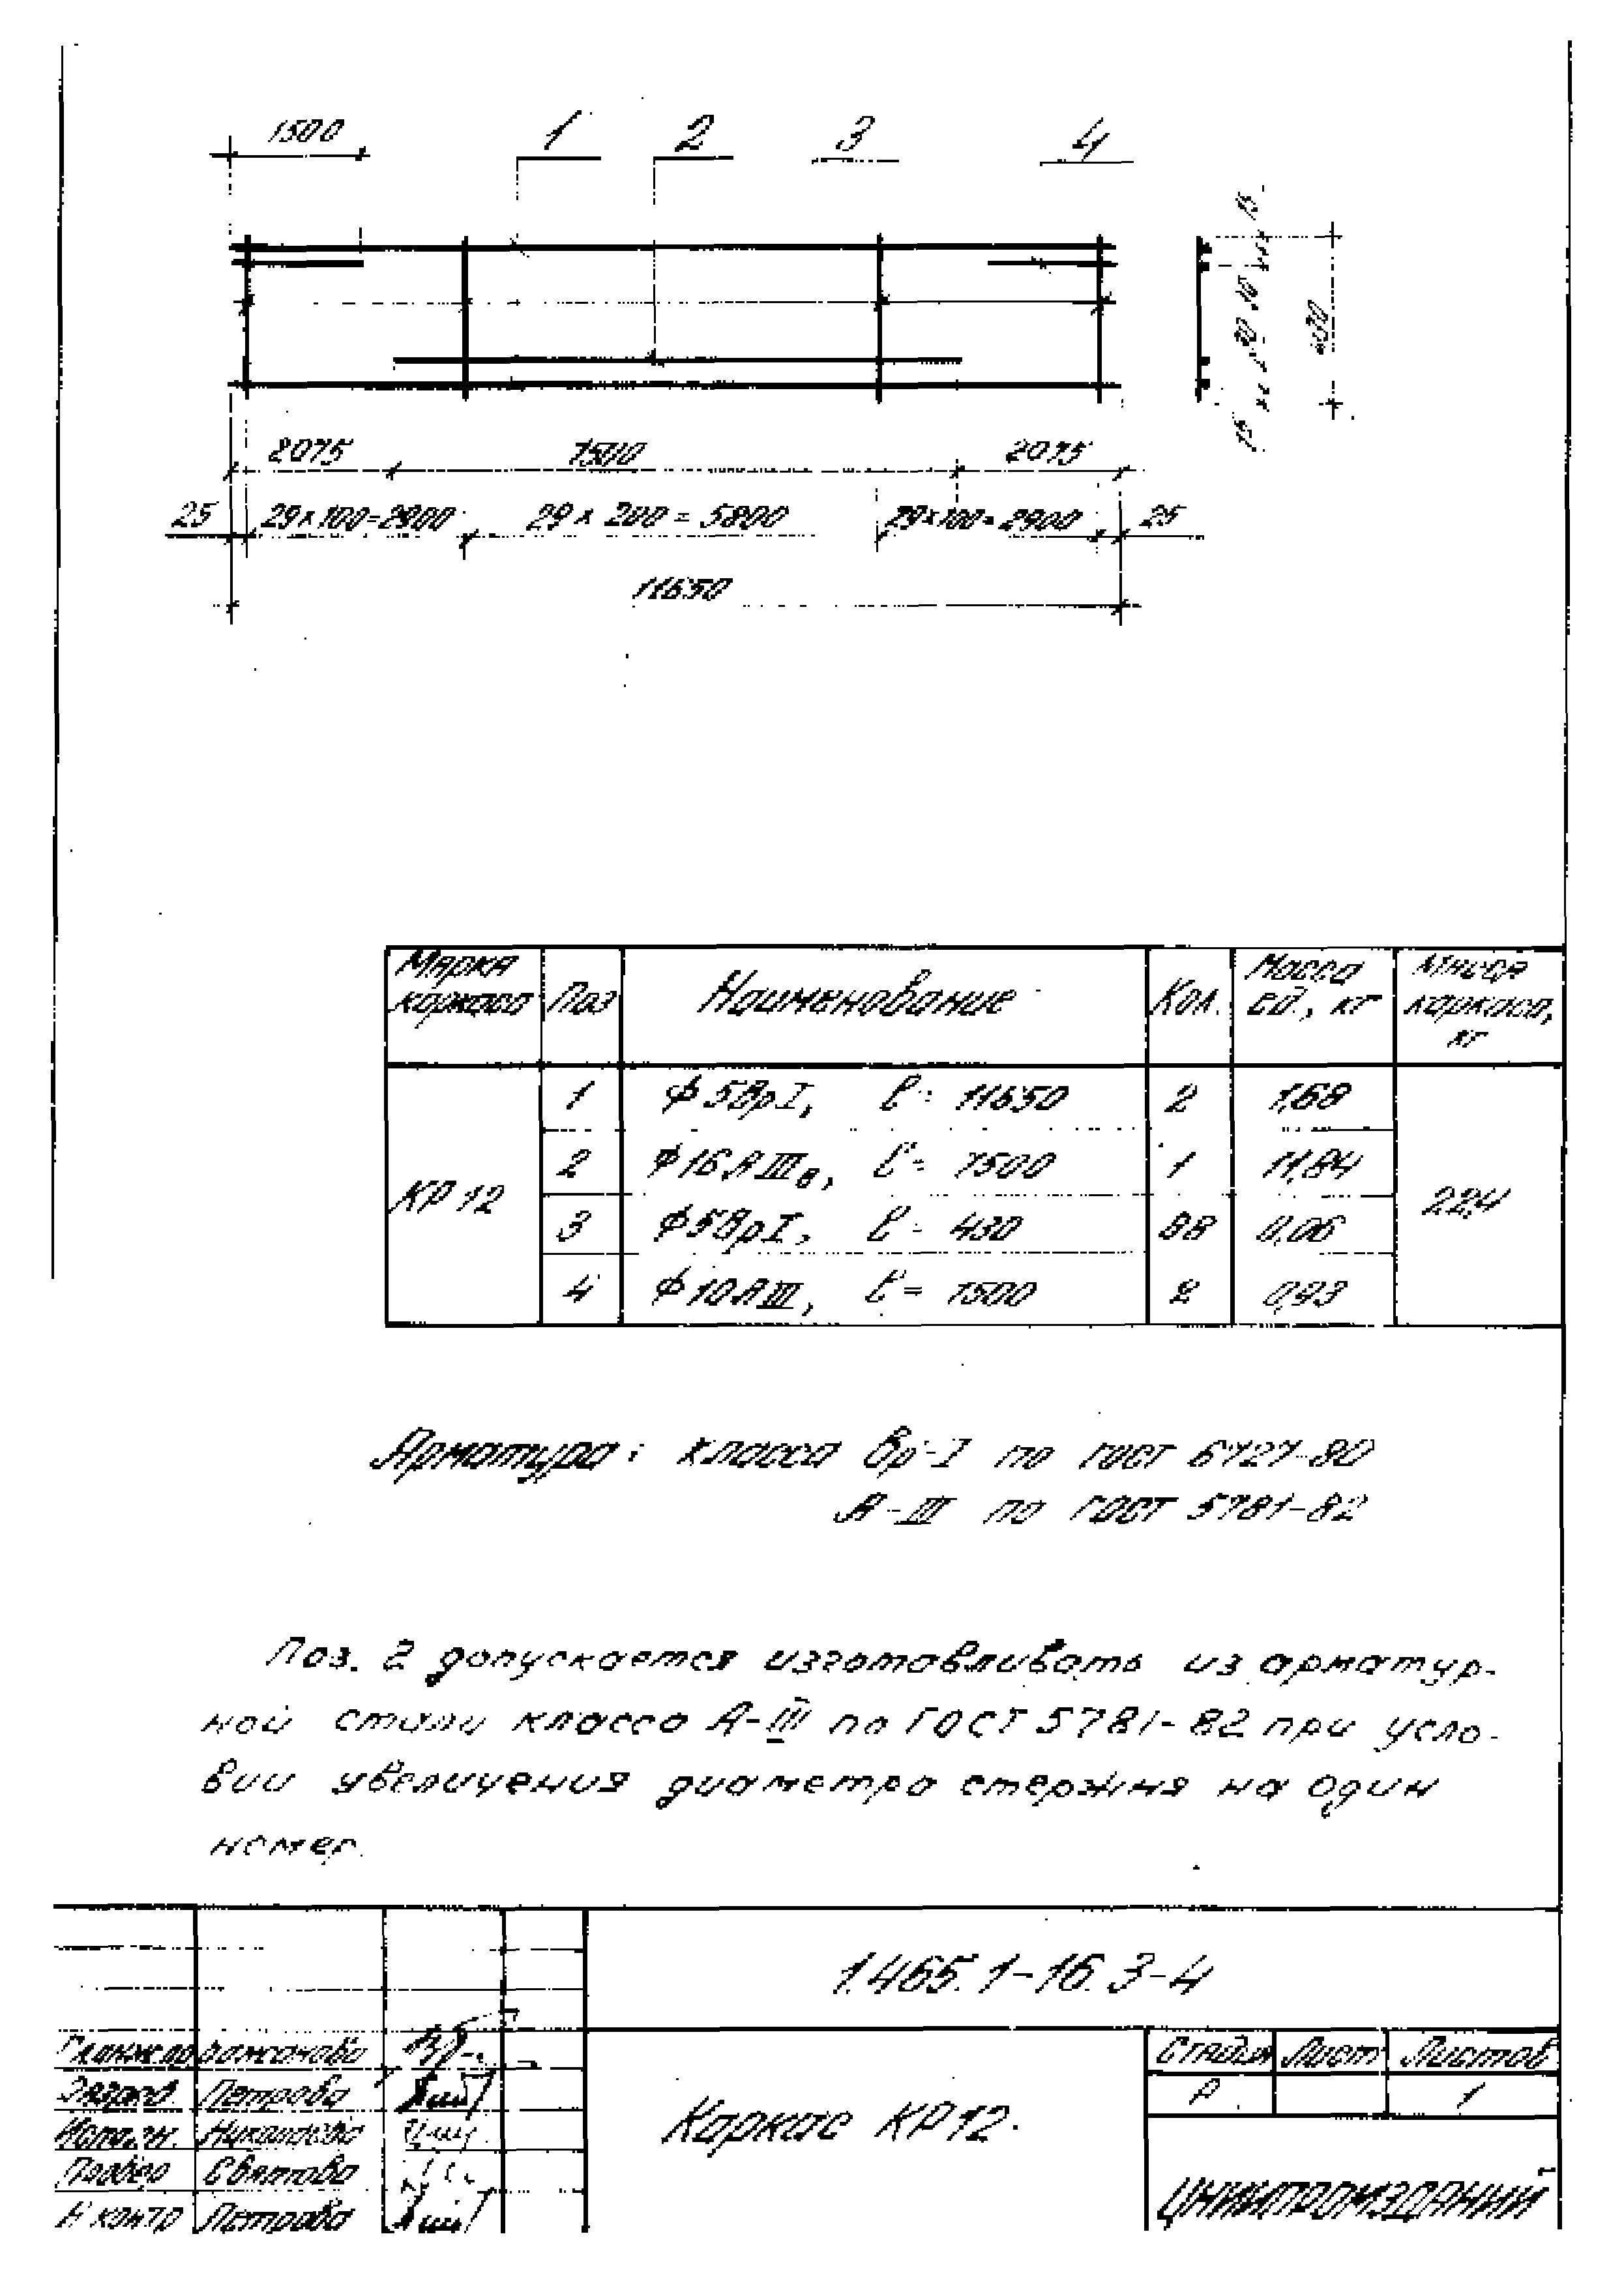 1500
1
2
3
4
15
30
10
15
430
2075
7500
2075
25
29×100=2900
29 × 200 = 5800
29×100=2900
25
11650
Марка каркаса
Поз
Наименование
Кол.
Масса ед., кг
Масса каркаса, кг
КР 12
1
ϕ5ВрI, ℓ= 11650
2
1,68
2
ϕ16АIIIв, ℓ= 7500
1
11,84
3
ϕ5ВрI, ℓ= 430
88
0,06
4
ϕ10АIII, ℓ= 1500
2
0,93
22,4
Арматура: класса Вр-I по ГОСТ 6727-80
А-III по ГОСТ 5781-82
Поз. 2 допускается изготавливать из арматур-
ной стали класса А-III по ГОСТ 5781-82 при усло-
вии увеличения диаметра стержня на один
номер.
1.465.1-16.3-4
Стадия
Лист
Листов
Р
1
Каркас КР12.
Разраб. Петрова
Исполн.
Провер Святова
Н контр Петрова
ЦНИИПРОМЗДАНИЙ